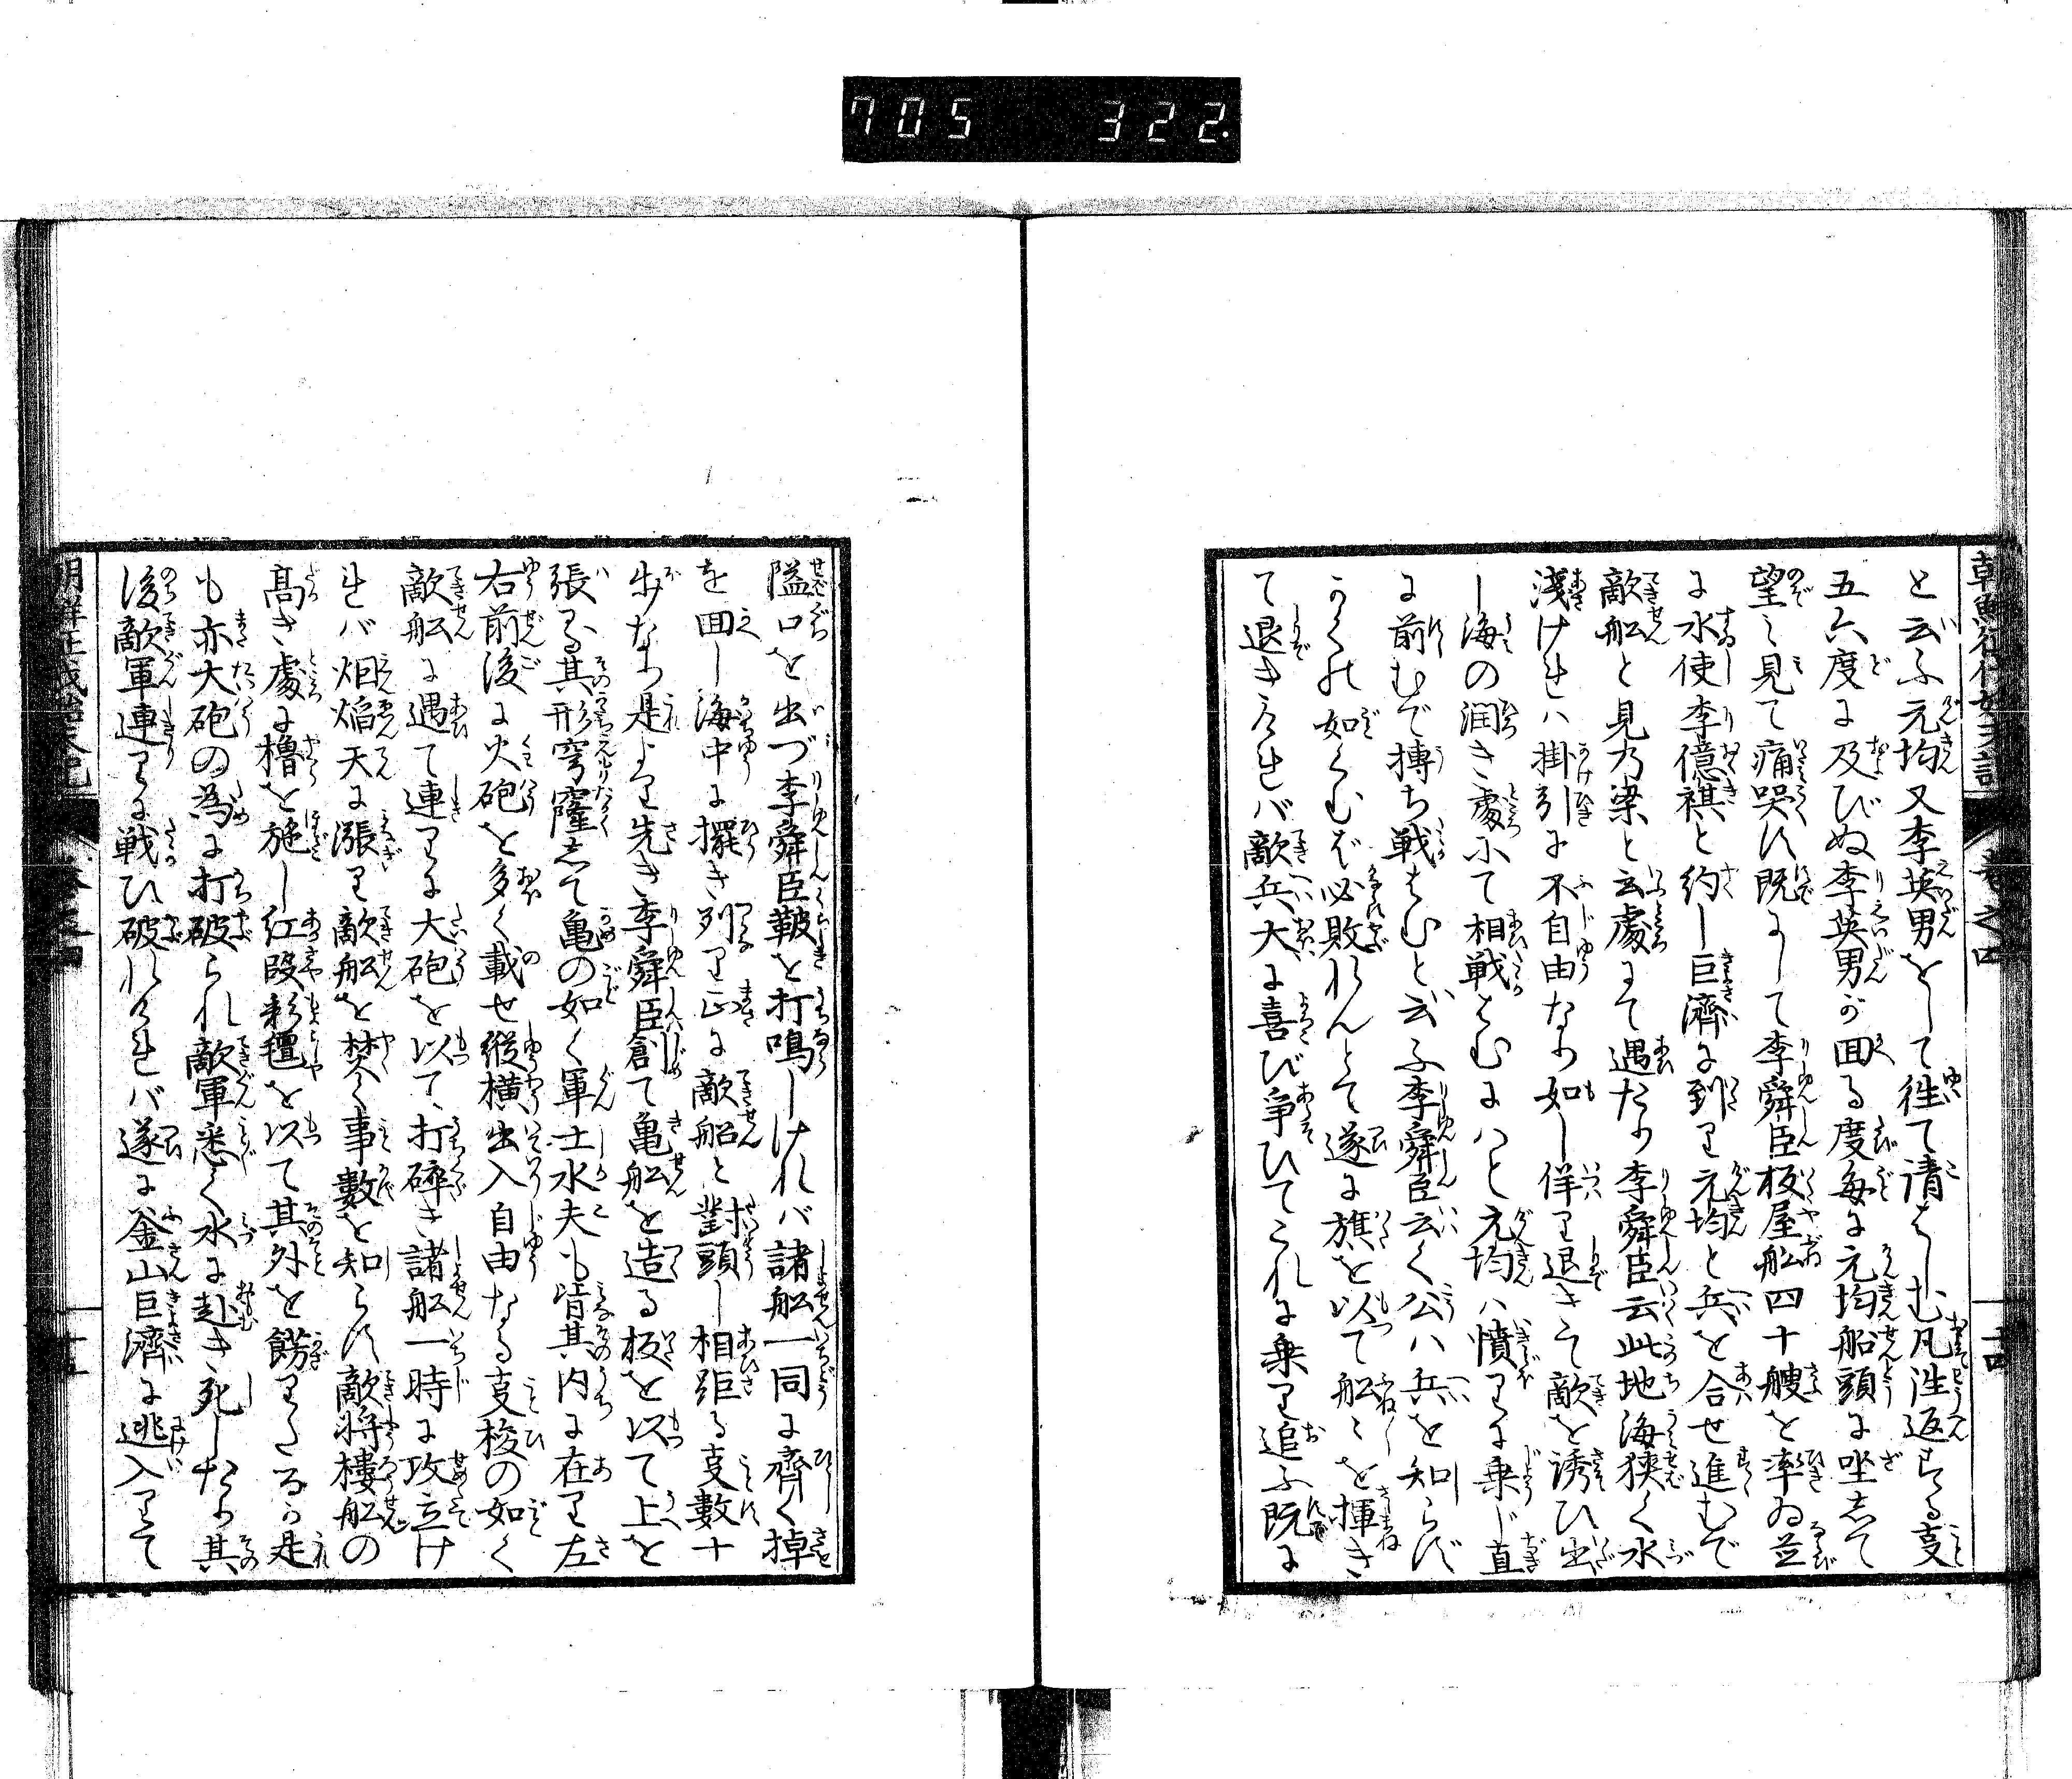 705 322.
朝鮮征伐始末記 巻之四 二十四
と云ふ元均又李英男をして徃て請はしむ凡徃返する叓
五六度に及びぬ李英男が囬る度毎に元均船頭に坐して
望み見て痛哭ス既にして李舜臣板屋舩四十艘を率ゐ並
に水使李億祺と約し巨濟に到り元均と兵を合せ進むで
敵船と見乃梁と云處にて遇たり李舜臣云此地海狭く水
淺けれハ掛引に不自由なり如し佯り退きて敵を誘ひ出
し海の濶き處にて相戦はむにハと元均ハ憤りに乗じ直
に前むで摶ち戦はむと云ふ李舜臣云く公ハ兵を知らず
かくの如くむば必敗れんとて遂に旗を以て舩〻を揮き
て退きけれバ敵兵大に喜び争ひてこれに乗り追ふ既に
隘口を出づ李舜臣鞁を打鳴しけれバ諸舩一同に齊く掉
を囬し海中に擺き列り正に敵船と對頭し相距る叓數十
歩なり是より先き李舜臣創て亀舩を造る板を以て上を
張る其形穹窿して亀の如く軍士水夫も皆其内に在り左
右前後に火砲を多く載せ縦横出入自由なる叓梭の如く
敵舩に遇て連りに大砲を以て打碎き諸舩一時に攻立け
れバ烟焔天に漲り敵船を焚く事數を知らス敵将樓舩の
髙き處に櫓を施し紅段彩氊を以て其外を餝りたるか是
も亦大砲の為に打破られ敵軍悉く水に赴き死したり其
後敵軍連りに戦ひ破れけれバ遂に釜山巨濟に逃入りて
朝鮮征伐始末記 巻之四 二十五